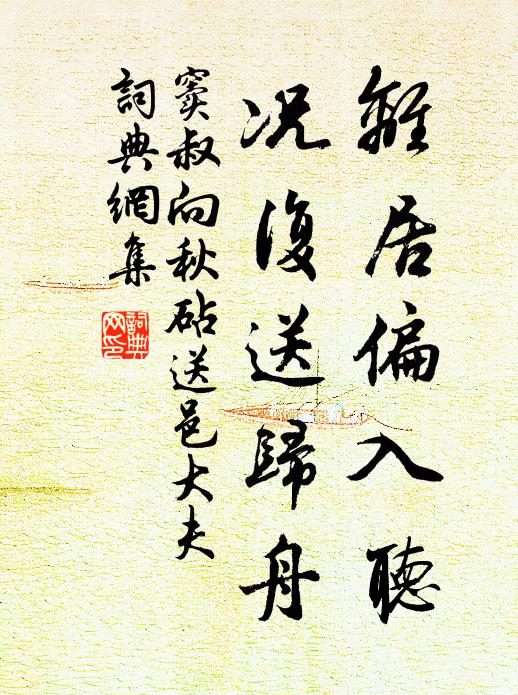 離居偏入聽
况復送歸舟
竇叔向秋砧送邑大夫
詞典網集
詞典網印